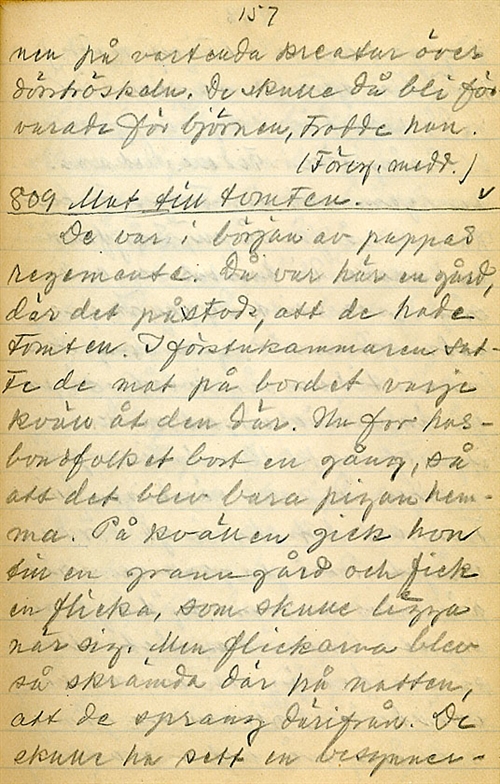 157
nen på vartenda kreatur över
dörrtröskeln. De skulle då bli för-
varade för björnen, trodde han.
(Föreg. medd.)
809 Mat till tomten.
De var i början av pappas
regemente. Då var här en gård,
där det påstods, att de hade
tomten. I förstukammaren sat-
te de mat på bordet varje
kväll åt den där. Nu for hus-
bondfolket bort en gång, så
att det blev bara pigan hem-
ma. På kvällen gick hon
till en granngård och fick
en flicka, som skulle ligga
när sig. Men flickorna blev
så skrämda där på natten,
att de sprang därifrån. De
skulle ha sett en besynner-